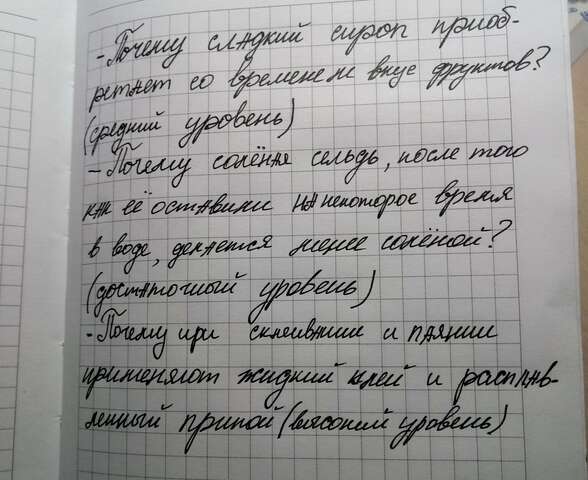 - Почему сладкий сироп приоб-
ретает со временем вкус фруктов?
(средний уровень)
- Почему солёная сельдь, после того
как её оставили на некоторое время
в воде, делается менее солёной?
(достаточный уровень)
- Почему при склеивании и паянии
применяют жидкий клей и расплав-
ленный припой (высокий уровень)